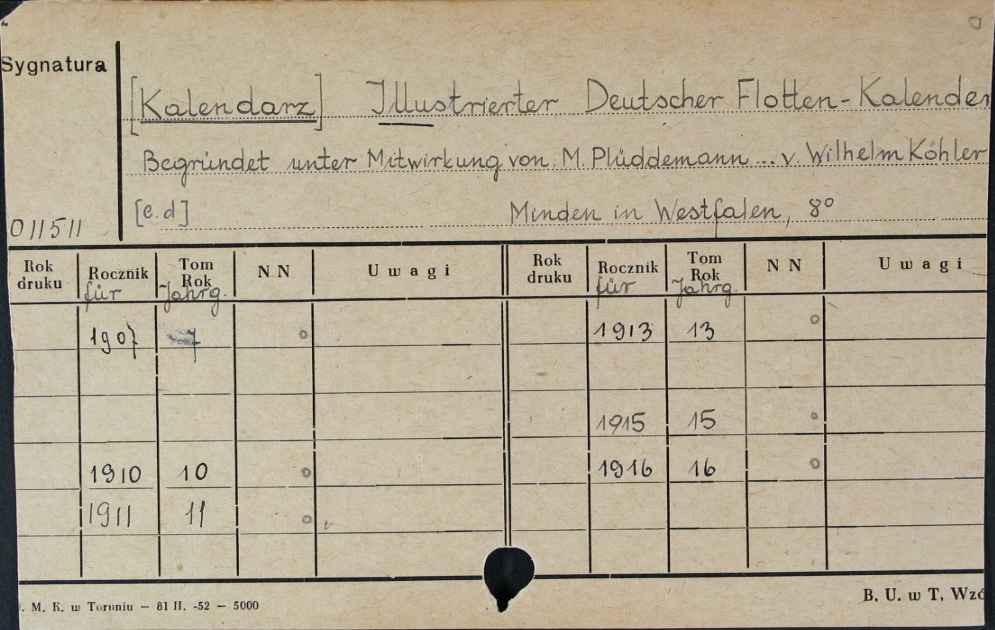 Sygnatura
[Kalendarz] Illustrierter Deutscher Flotten-Kalender
Begründet unter Mitwirkung von M. Plüddemann ... v. Wilhelm Köhler
011511 [e.d] Minden in Westfalen, 8°
Rok druku Rocznik für Tom Rok Jahrg. NN Uwagi Rok druku Rocznik für Tom Rok Jahrg. NN Uwagi
1907 7 o 1913 13 o
1915 15 o
1910 10 o 1916 16 o
1911 11 o
. M. K. w Toruniu — 81 II. -52 — 5000 B. U. w T. Wzó